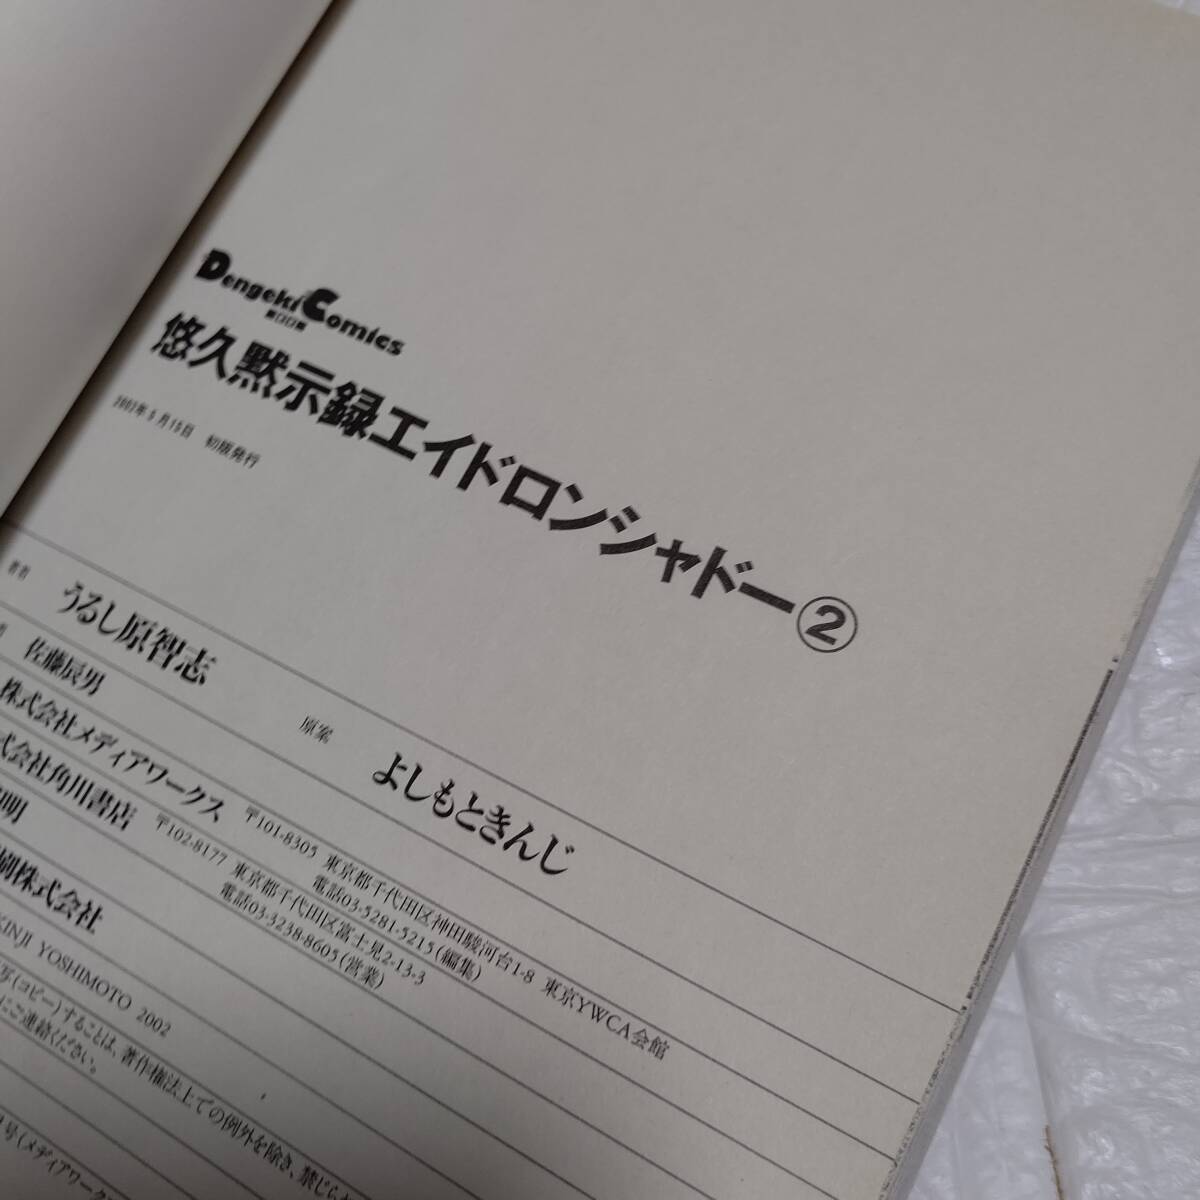 Dengeki Comics
悠久黙示録エイドロンシャドー②
2002年5月15日 初版発行
著者 うるし原智志 原案 よしもときんじ
佐藤辰男
株式会社メディアワークス
〒101-8305 東京都千代田区神田駿河台1-8 東京YWCA会館
電話03-5281-5215(編集)
式会社角川書店
〒102-8177 東京都千代田区富士見2-13-3
電話03-3238-8605(営業)
明
刷株式会社
KINJI YOSHIMOTO 2002
写(コピー)することは、著作権法上での例外を除き、禁じられ
にご連絡ください。
号(メディアワーク